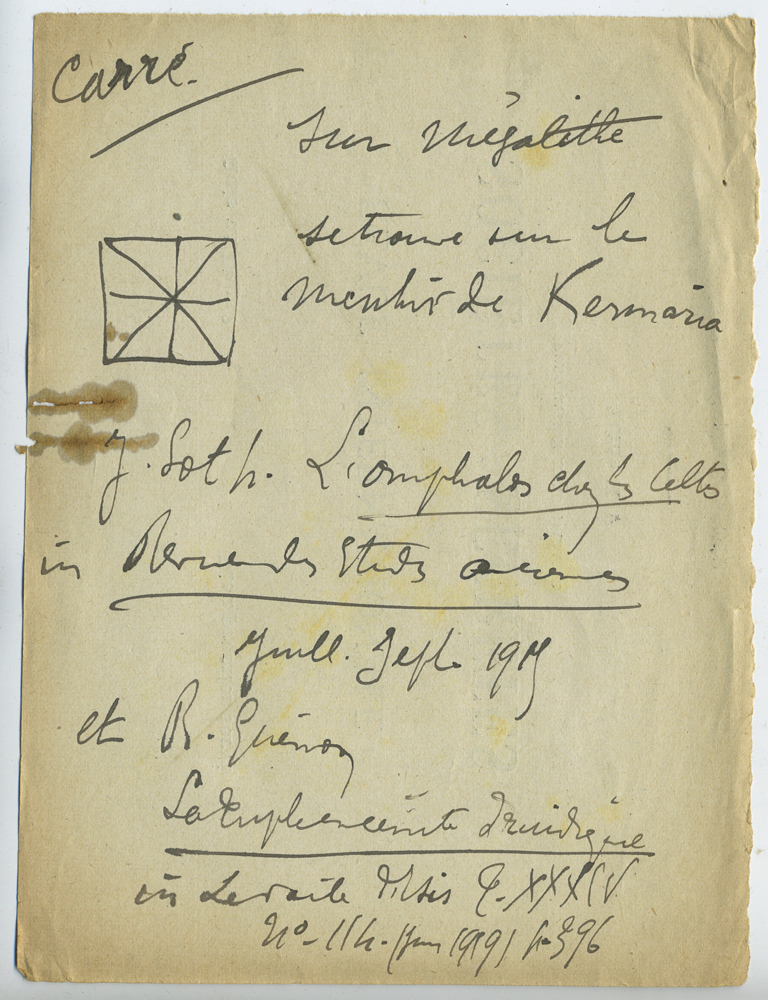 Carré.
sur mégalithe
se trouve sur le
menhir de Kermaria
J. Loth. L'omphalos chez les Celtes
in Revue des Etudes anciennes
Juill. Sept. 1915
et R. Guénon
La triple enceinte druidique
in Le voile d'Isis T. XXXIV
N° 114. (Juin 1929) p. 396